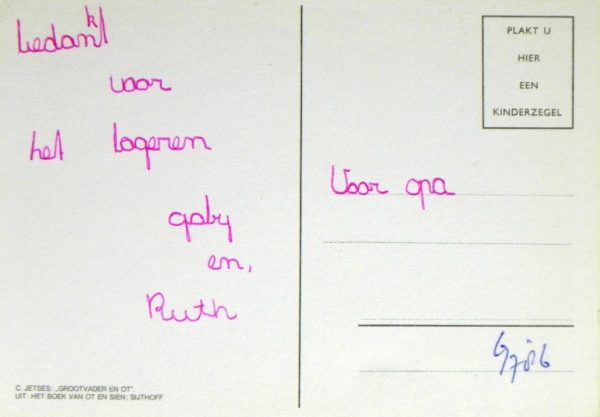 bedankt
voor
het logeren
gaby
en,
Ruth
PLAKT U
HIER
EEN
KINDERZEGEL
Voor opa
C. JETSES: „GROOTVADER EN OT".
UIT: HET BOEK VAN OT EN SIEN; SIJTHOFF